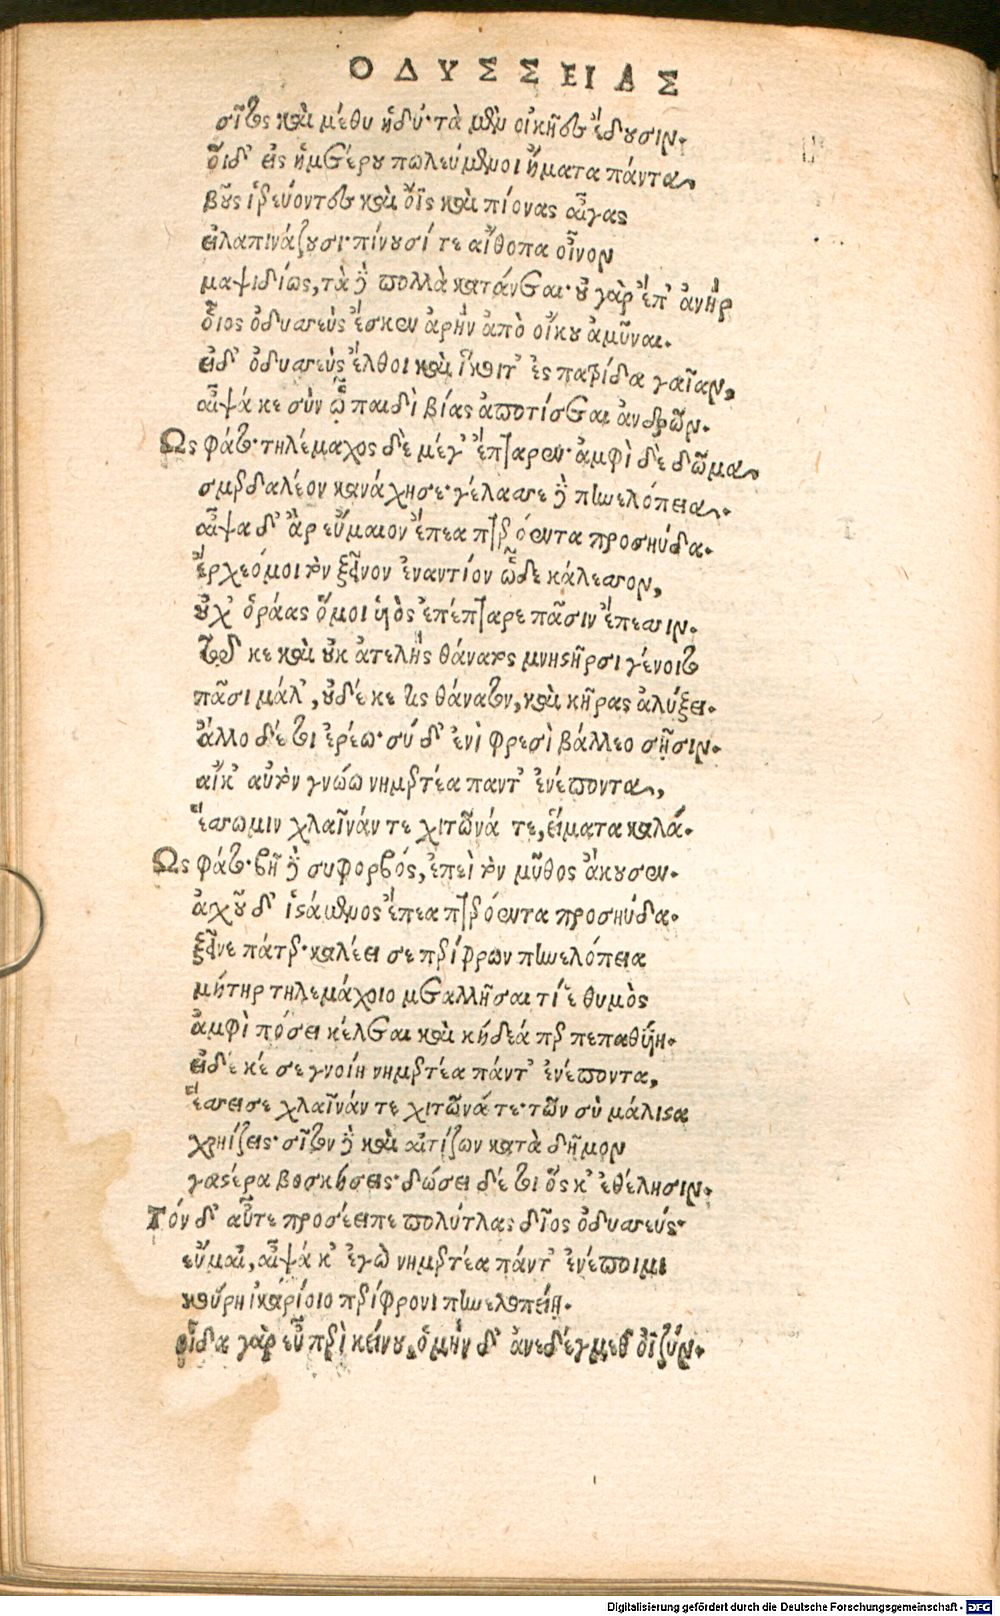 ΟΔΥΣΣΕΙΑΣ
σῖτος καὶ μέθυ ἡδύ· τὰ μὲν οἰκῆες ἔδουσιν·
οἵδ' εἰς ἡμετέρου πωλεύμενοι ἤματα πάντα,
βοῦς ἱρεύοντες καὶ ὄϊς καὶ πίονας αἶγας
εἰλαπινάζουσι· πίνουσί τε αἴθοπα οἶνον
μαψιδίως, τὰ δὲ πολλὰ κατάνεται· οὐ γὰρ ἔπ' ἀνὴρ
οἷος ὀδυσσεὺς ἔσκεν ἀρὴν ἀπὸ οἴκου ἀμῦναι.
εἰδ' ὀδυσσεὺς ἔλθοι καὶ ἵκοιτ' ἐς πατρίδα γαῖαν,
αἶψά κε σὺν ᾧ παιδὶ βίας ἀποτίσεται ἀνδρῶν.
Ως φάτο· τηλέμαχος δὲ μέγ' ἔπταρεν· ἀμφὶ δὲ δῶμα
σμερδαλέον κανάχησε· γέλασσε δὲ πηνελόπεια.
αἶψα δ' ἂρ εὔμαιον ἔπεα πτερόεντα προσηύδα.
ἔρχεό μοι τὸν ξεῖνον ἐναντίον ὧδε κάλεσσον,
οὐχ' ὁράας ὅμοι υἱὸς ἐπέπταρε πᾶσιν ἔπεσσιν.
τῷ κε καὶ οὐκ ἀτελὴς θάνατος μνηστῆρσι γένοιτο
πᾶσι μάλ', οὐδέ κε τις θάνατον, καὶ κῆρας ἀλύξει.
ἄλλο δέ τοι ἐρέω· σύ δ' ἐνὶ φρεσὶ βάλλεο σῇσιν.
αἴκ' αὐτὸν γνώω νημερτέα παντ' ἐνέποντα,
ἕσσω μιν χλαῖνάν τε χιτῶνά τε, εἵματα καλά.
Ως φάτο· βῆ δὲ συφορβός, ἐπεὶ τὸν μῦθος ἄκουσεν.
ἀγχοῦ δ' ἱστάμενος ἔπεα πτερόεντα προσηύδα.
ξεῖνε πάτερ· καλέει σε περίφρων πηνελόπεια
μήτηρ τηλεμάχοιο μεταλλῆσαι τί ἑ θυμὸς
ἀμφὶ πόσει κέλεται καὶ κήδεά περ πεπαθυίη.
εἰδέ κέ σε γνοίη νημερτέα πάντ' ἐνέποντα,
ἕσσει σε χλαῖνάν τε χιτῶνά τε· τῶν σὺ μάλιστα
χρηίζεις· σῖτον δὲ καὶ αἰτίζων κατὰ δῆμον
γαστέρα βοσκήσεις· δώσει δέ τοι ὅς κ' ἐθέλησιν.
Τόν δ' αὖτε προσέειπε πολύτλας δῖος ὀδυσσεύς·
εὔμαι', αἶψά κ' ἐγὼ νημερτέα πάντ' ἐνέποιμι
κούρη ἰκαρίοιο περίφρονι πηνελοπείῃ.
οἶδα γὰρ εὖ περὶ κείνου, ὁμὴν δ' ἀνεδέγμεθ' ὀϊζύν.
Digitalisierung gefördert durch die Deutsche Forschungsgemeinschaft - DFG